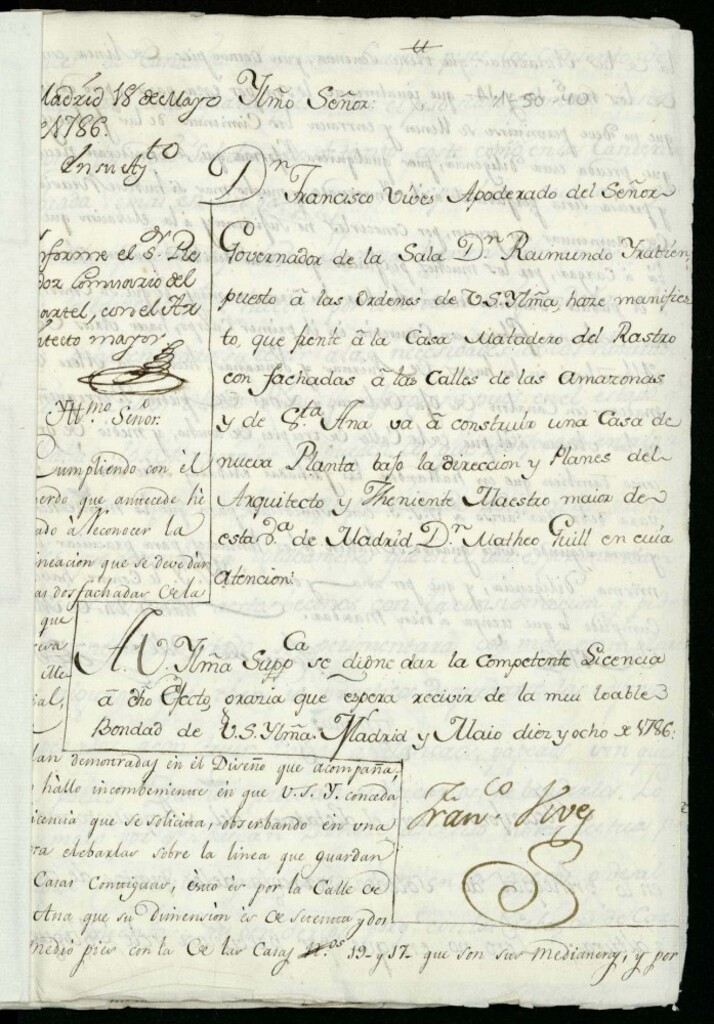 Madrid 18 de Mayo
de 1786.
En su Ay.to
Informe el S.or Re
dor Comisario del
Quartel, con el Ar
quitecto mayor
Ylmo Señor:
1-50-40
D.n Francisco Vives Apoderado del Señor
Governador de la Sala D.n Raimundo Yrabien,
puesto â las Ordenes de V.S. Ylma, haze manifies
to, que frente â la Casa Matadero del Rastro
con fachadas â las Calles de las Amazonas
y de S.ta Ana va â construir una Casa de
nueva Planta bajo la direccion y Planes del
Arquitecto y Theniente Maestro maior de
esta V.a de Madrid D.n Matheo Guill en cuia
atencion:
A V. Ylma Supp.ca se digne dar la competente Licencia
â dho Efecto, grazia que espera recivir de la mui loable
Bondad de V.S. Ylma. Madrid y Maio diez y ocho de 1786:
Fran.co Vives
Yll.mo Señor.
Cumpliendo con el
erdo que antecede he
ado à Reconocer la
ineacion que se deve dar
as dos fachadas de la
que
eva
ille
ial,
tan demostradas en el Diseño que acompaña,
hallo incombeniente en que V.S.Y. conceda
icencia que se solicita, obserbando en una
ra elebarlas sobre la linea que guardan
Casas Contiguas, esto es por la Calle de
Ana que su dimension es de setenta y dos
medio pies con la de las Casas n.os 19 y 17 que son sus Medianeras, y por